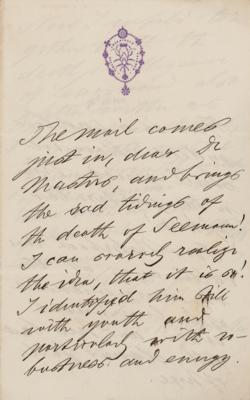 The mail comes
just in, dear Dr
Masters, and brings
the sad tidings of
the death of Seemann!
I can scarcely realize
the idea, that it is so!
I identified him still
with youth and
particularly with ro-
bustness and energy.